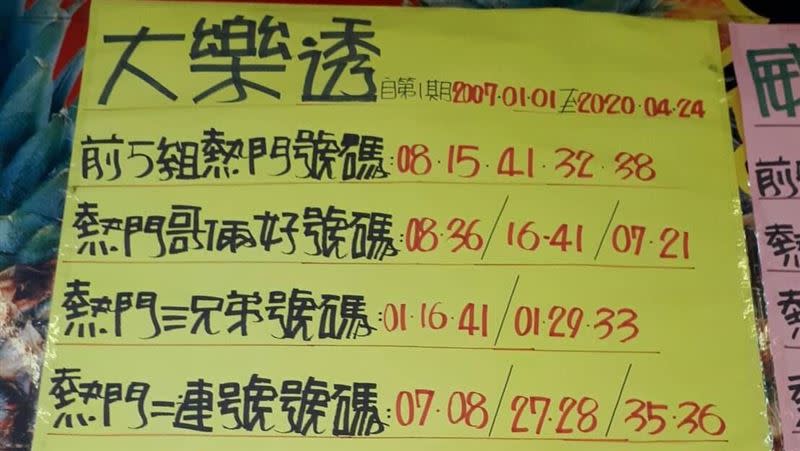 大樂透 自第1期2007.01.01至2020.04.24
前5組熱門號碼:08.15.41.32.38
熱門哥倆好號碼:08.36/16-41/07.21
熱門三兄弟號碼:01.16.41/01.29.33
熱門二連號號碼:07.08/27.28/35.36
威
前
熱
熱
熱